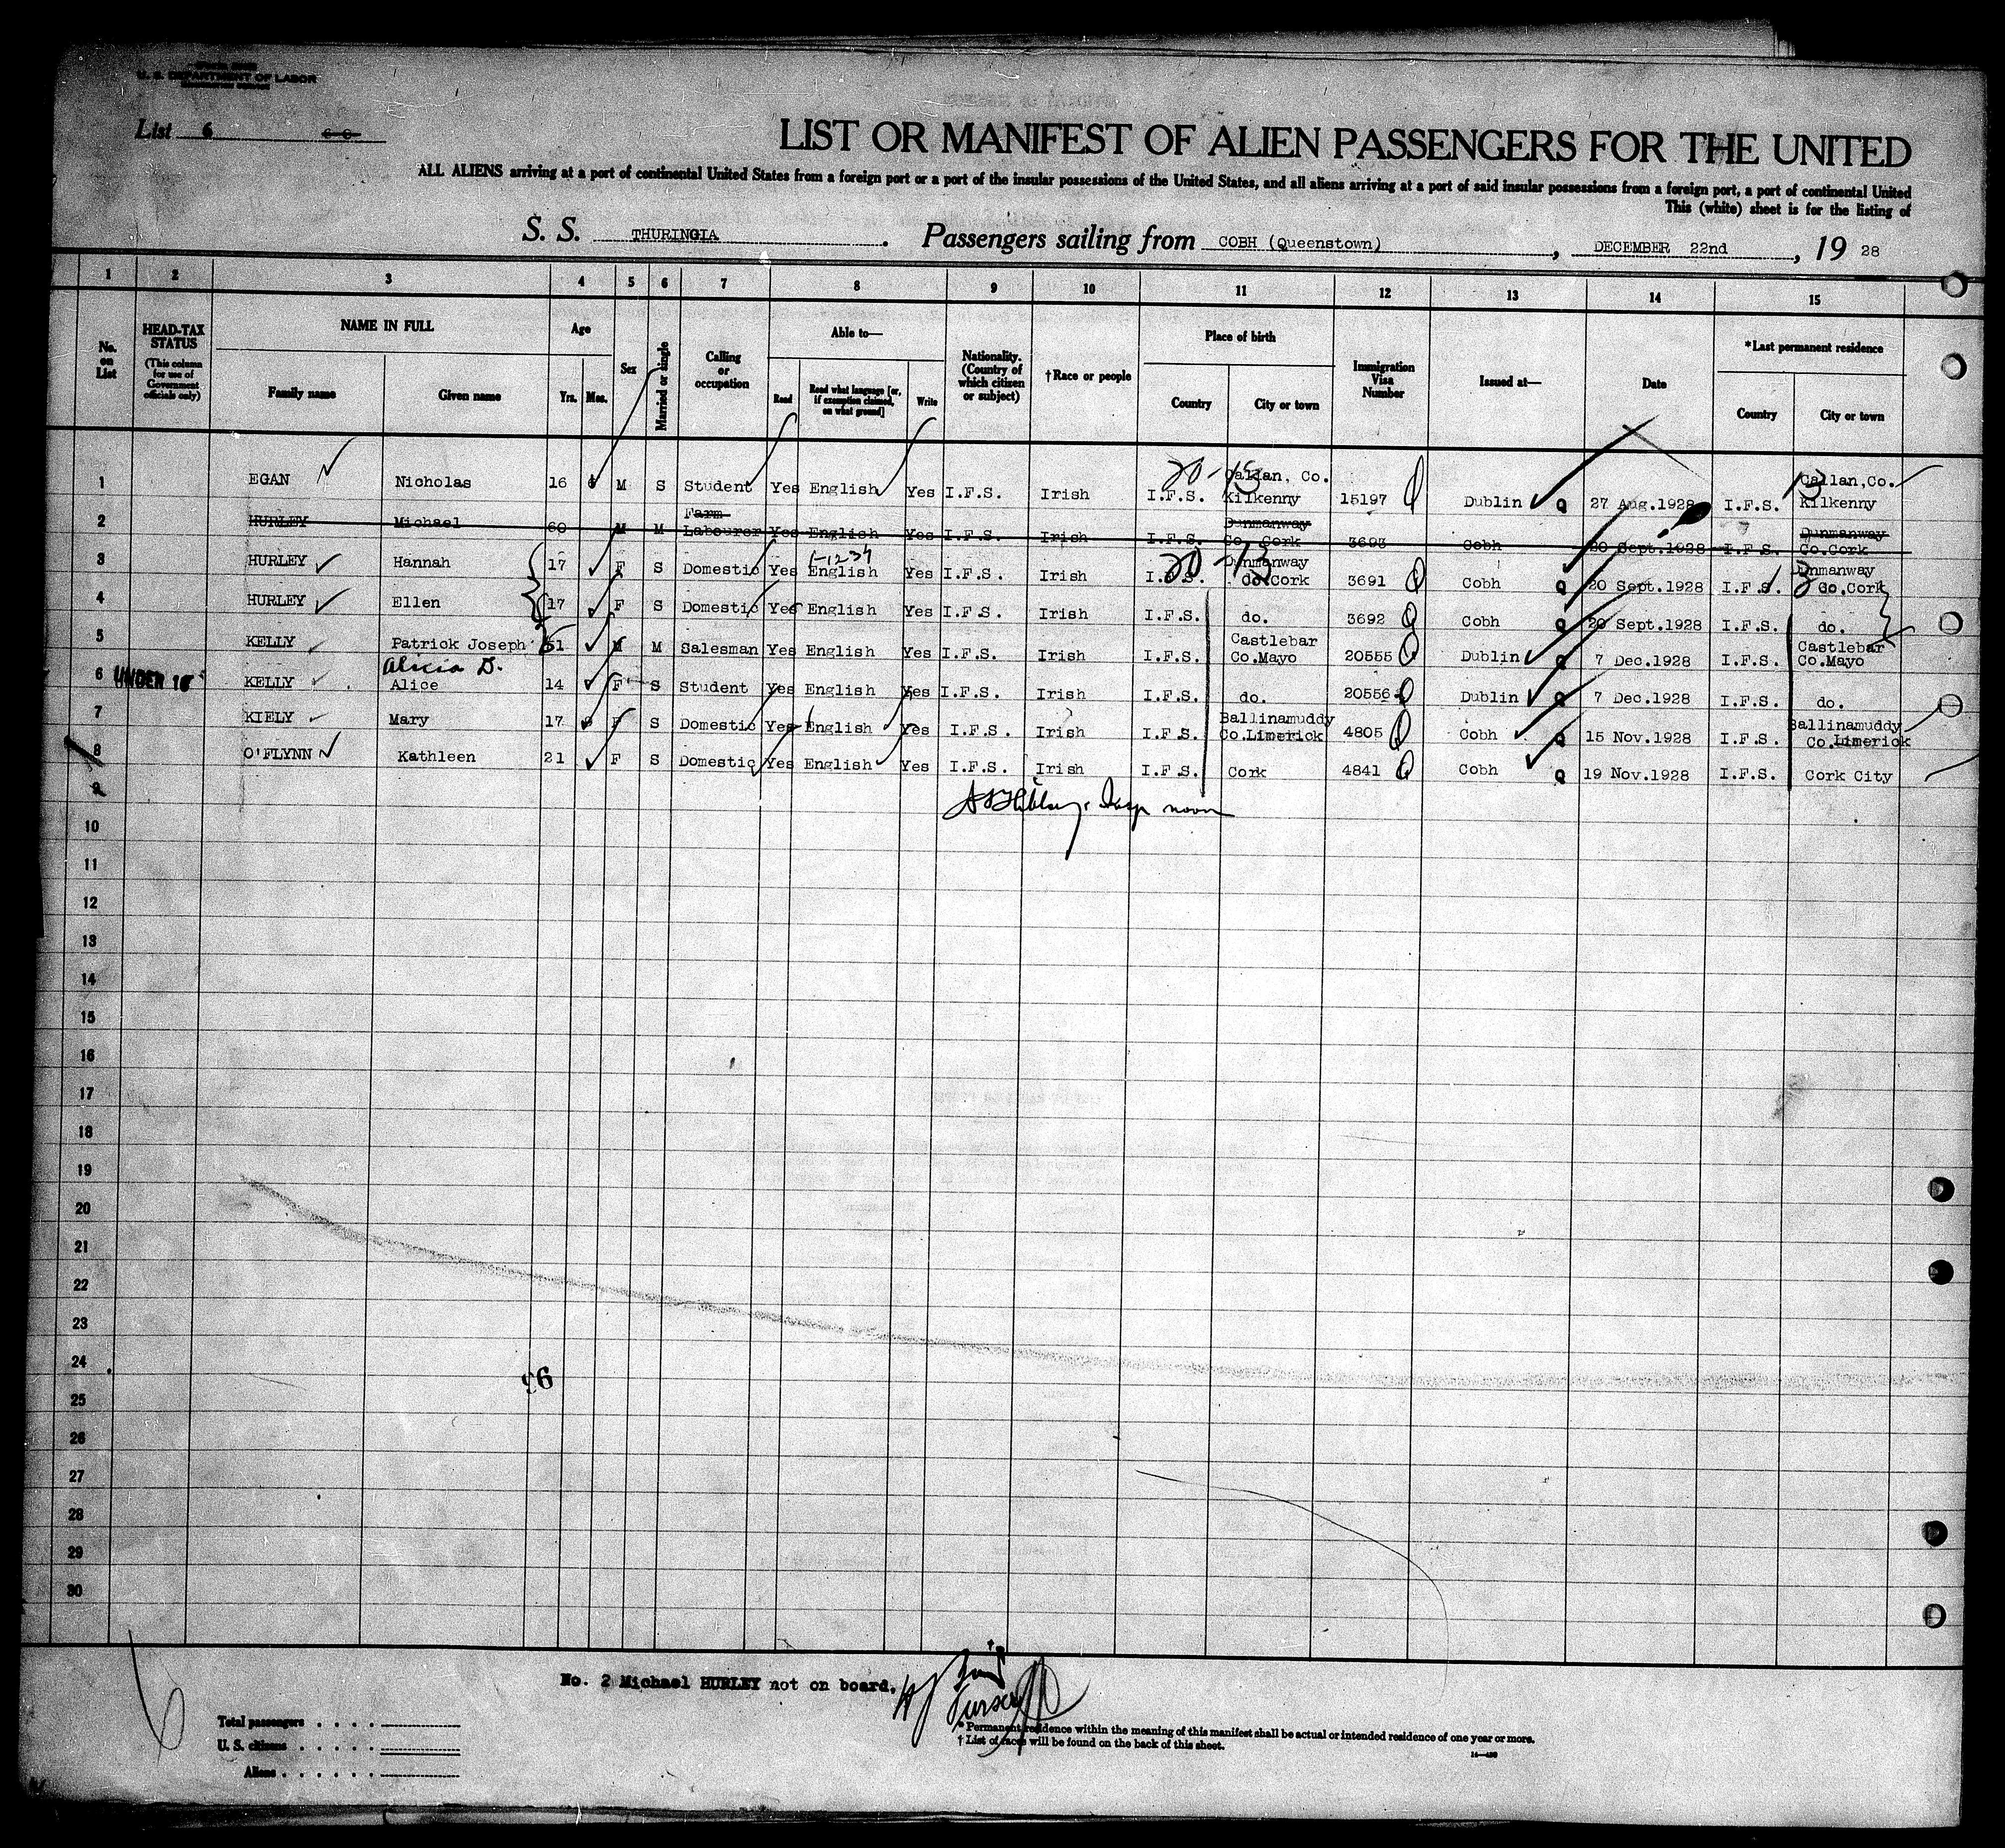 U. S. DEPARTMENT OF LABOR
List 6
LIST OR MANIFEST OF ALIEN PASSENGERS FOR THE UNITED
ALL ALIENS arriving at a port of continental United States from a foreign port or a port of the insular possessions of the United States, and all aliens arriving at a port of said insular possessions from a foreign port, a port of continental United
This (white) sheet is for the listing of
S. S. THURINGIA. Passengers sailing from COBH (Queenstown), DECEMBER 22nd, 19 28
1 2 3 4 5 6 7 8 9 10 11 12 13 14 15
No. on List
HEAD-TAX STATUS (This column for use of Government officials only)
NAME IN FULL
Family name Given name
Age
Yrs. Mos.
Sex
Married or single
Calling or occupation
Able to—
Read Read what language [or, if exemption claimed, on what ground] Write
Nationality. (Country of which citizen or subject)
†Race or people
Place of birth
Country City or town
Immigration Visa Number
Issued at—
Date
*Last permanent residence
Country City or town
1 EGAN Nicholas 16 M S Student Yes English Yes I.F.S. Irish I.F.S. Callan, Co. Kilkenny 15197 Dublin Q 27 Aug.1928 I.F.S. Callan,Co. Kilkenny
20-13 13
2 HURLEY Michael 60 M M Farm Labourer Yes English Yes I.F.S. Irish I.F.S. Dunmanway Co. Cork 3693 Cobh 20 Sept.1928 I.F.S. Dunmanway Co.Cork
3 HURLEY Hannah 17 F S Domestic Yes English Yes I.F.S. Irish I.F.S. Dunmanway Co.Cork 3691 Q Cobh Q 20 Sept.1928 I.F.S. Dunmanway Co.Cork
20-13 13
4 HURLEY Ellen 17 F S Domestic Yes English Yes I.F.S. Irish I.F.S. do. 3692 Q Cobh Q 20 Sept.1928 I.F.S. do.
5 KELLY Patrick Joseph 51 M M Salesman Yes English Yes I.F.S. Irish I.F.S. Castlebar Co.Mayo 20555 Q Dublin Q 7 Dec.1928 I.F.S. Castlebar Co.Mayo
Alicia D.
6 UNDER 16 KELLY Alice 14 F S Student Yes English Yes I.F.S. Irish I.F.S. do. 20556 Q Dublin Q 7 Dec.1928 I.F.S. do.
7 KIELY Mary 17 F S Domestic Yes English Yes I.F.S. Irish I.F.S. Ballinamuddy Co.Limerick 4805 Q Cobh Q 15 Nov.1928 I.F.S. Ballinamuddy Co.Limerick
8 O'FLYNN Kathleen 21 F S Domestic Yes English Yes I.F.S. Irish I.F.S. Cork 4841 Q Cobh Q 19 Nov.1928 I.F.S. Cork City
9
10
11
12
13
14
15
16
17
18
19
20
21
22
23
24
25
26
27
28
29
30
No. 2 Michael HURLEY not on board.
Purser
6
Total passengers
U. S. citizens
Aliens
* Permanent residence within the meaning of this manifest shall be actual or intended residence of one year or more.
† List of races will be found on the back of this sheet.